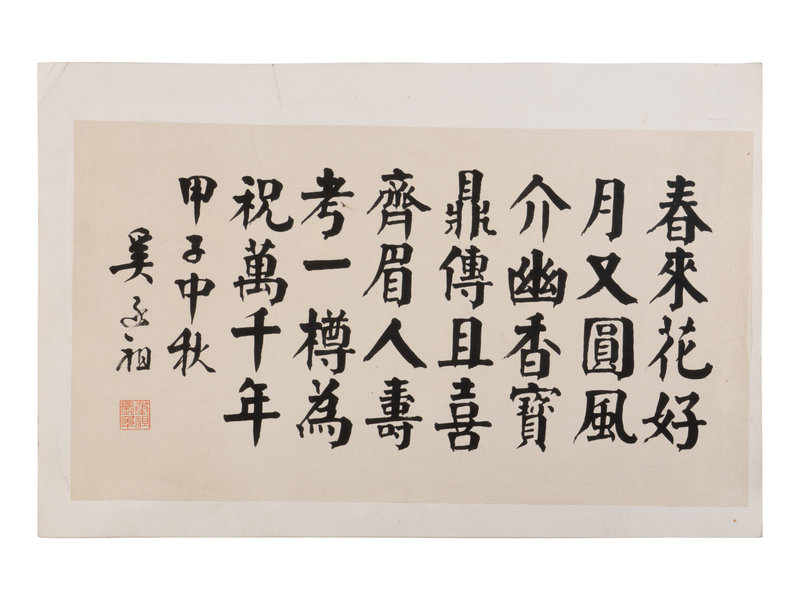 春來花好
月又圓風
介幽香寶
鼎傳且喜
齊眉人壽
考一樽為
祝萬千年
甲子中秋
吳祖